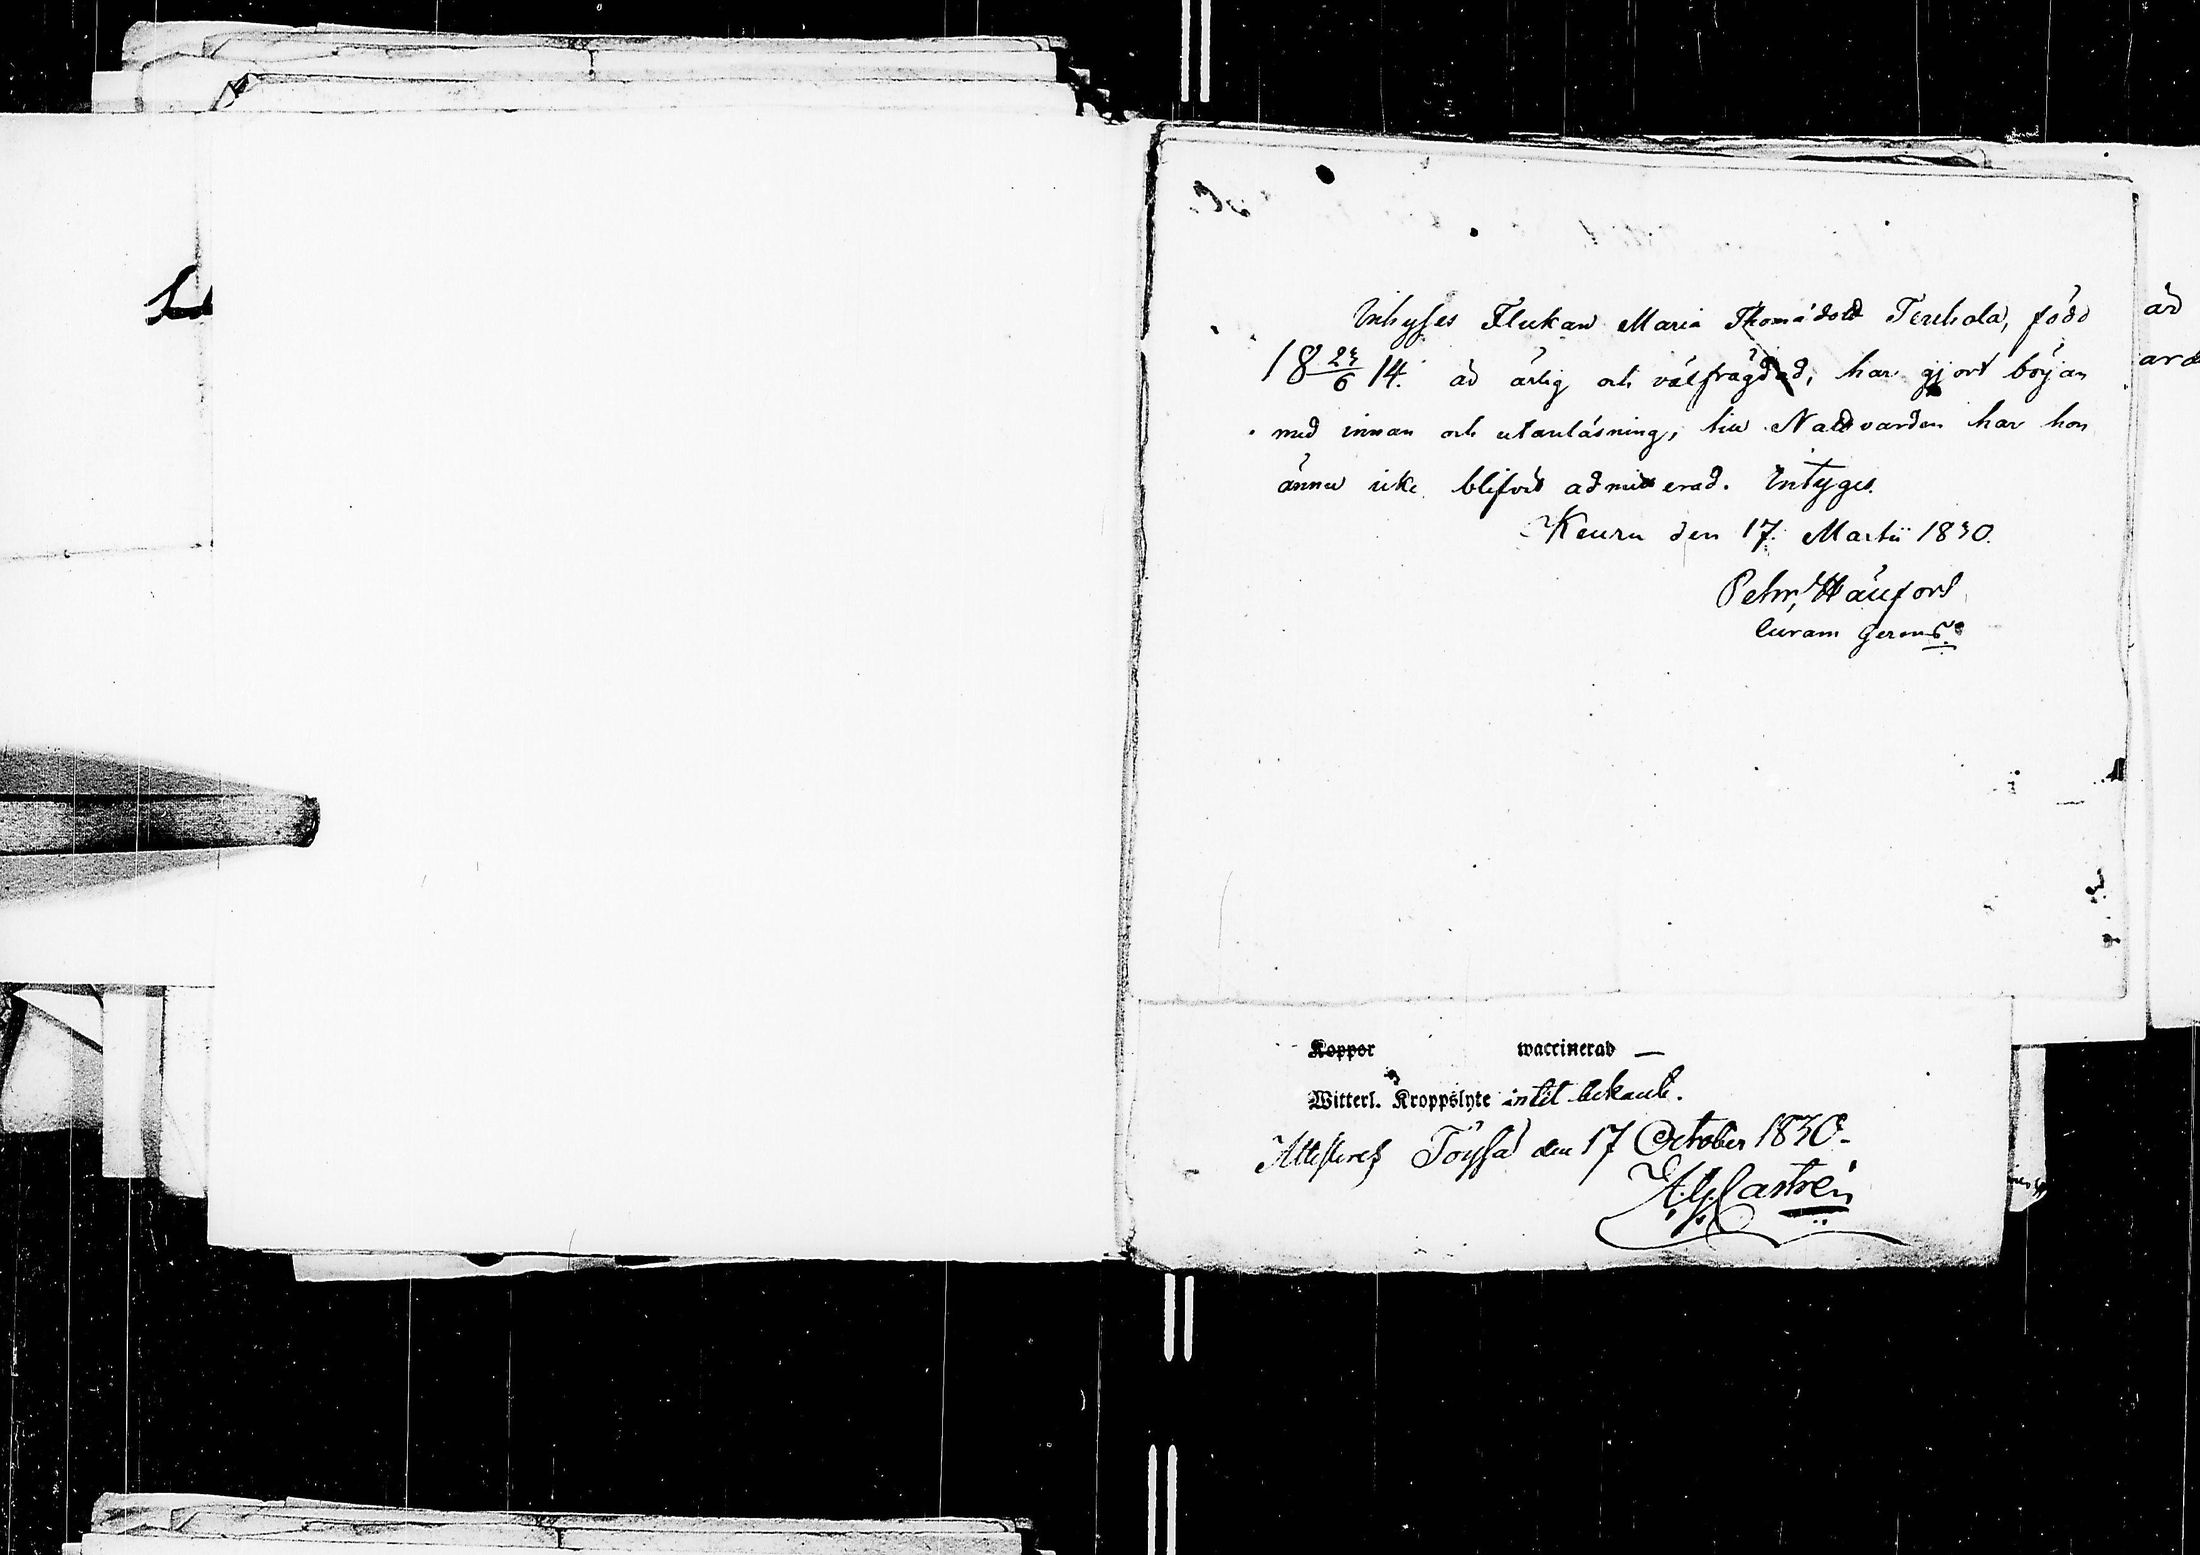 Inhyses Flickan Maria Thomädotr Terrhola, född
18 23/6 14. är ärlig och välfrägdad, har gjort början
med innan och utanläsning, till Nattvarden har hon
ännu icke blifvit admitterad. Intyges.
Keuru den 17. Martii 1830.
Pehr Hällfors
Curam Gerens.
är
Koppor waccinerad —
Witterl. Kroppslyte intet bekant.
Attesteras Töysä den 17 October 1830.
A.G. Castrén